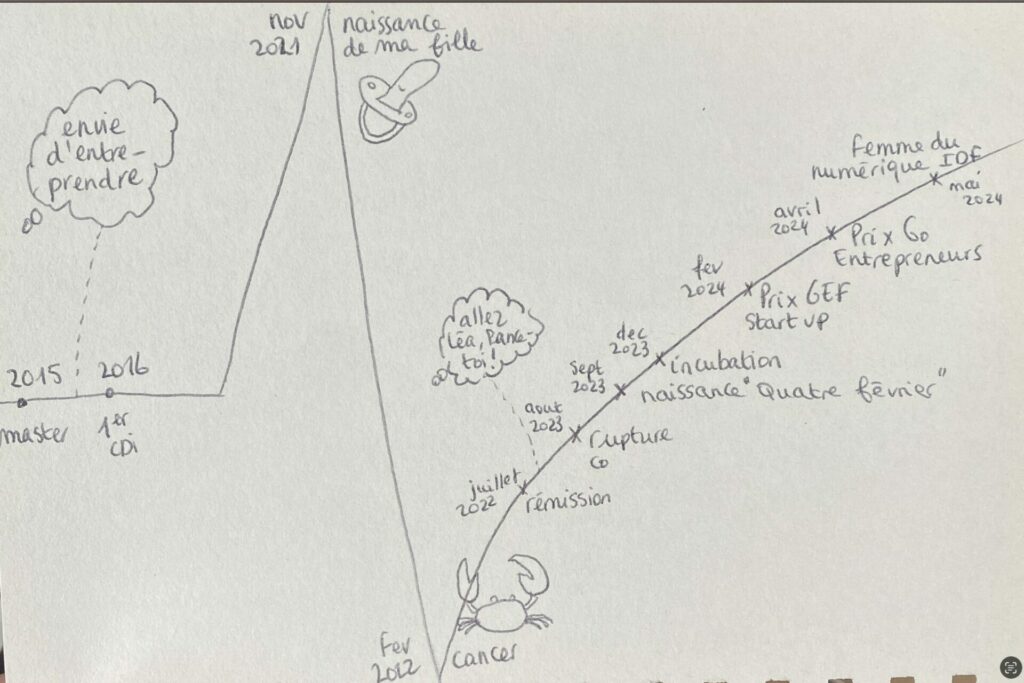 nov
2021
naissance
de ma fille
envie
d'entre-
prendre
2015
master
2016
1er
CDi
allez
Léa, lance-
toi!
Fev
2022
cancer
juillet
2022
rémission
aout
2023
rupture
CD
Sept
2023
naissance "Quatre février"
dec
2023
incubation
fev
2024
Prix GEF
Start up
avril
2024
Prix Go
Entrepreneurs
Femme du
numérique IDF
mai
2024